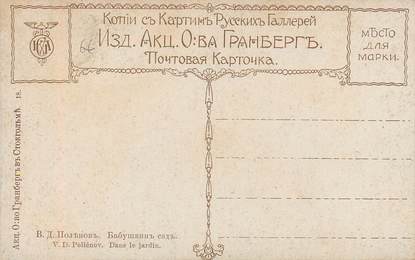 Копіи съ Картинъ Русскихъ Галлерей
Изд. Акц. О:ва Гранбергъ.
Почтовая Карточка.
мѣсто
для
марки.
Акц. О:во Гранбергъ въ Стокгольмѣ. 18.
В. Д. Полѣновъ. Бабушкинъ садъ.
V. D. Poliénov. Dans le jardin.